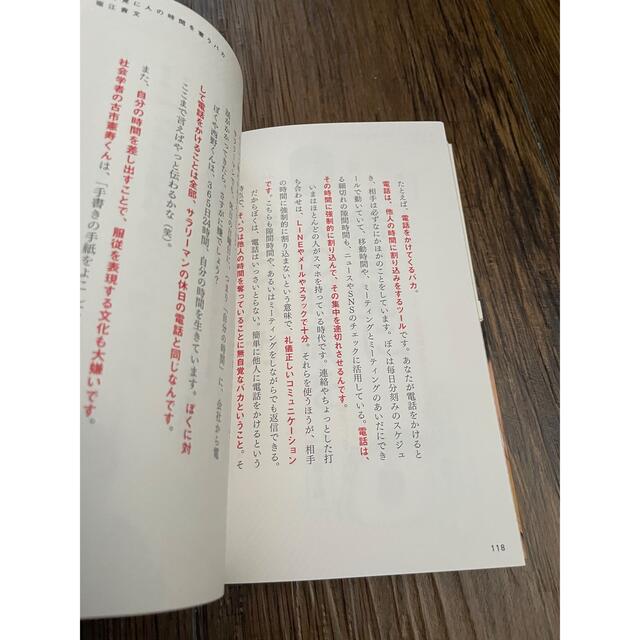 たとえば、電話をかけてくるバカ。
電話は、他人の時間に割り込みをするツールです。あなたが電話をかけると
き、相手は必ずなにかほかのことをしています。ぼくは毎日分刻みのスケジュ
ールで動いていて、移動時間や、ミーティングとミーティングのあいだにでき
る細切れの隙間時間も、ニュースやSNSのチェックに活用している。電話は、
その時間に強制的に割り込んで、その集中を途切れさせるんです。
いまはほとんどの人がスマホを持っている時代です。連絡やちょっとした打
ち合わせは、LINEやメールやスラックで十分。それらを使うほうが、相手
の時間に強制的に割り込まないという意味で、礼儀正しいコミュニケーション
です。こちらも隙間時間や、あるいはミーティングをしながらでも返信できる。
だからぼくは、電話はいっさいとらない。簡単に他人に電話をかけるという
そいつは他人の時間を奪っていることに無自覚なバカということ。そ
118
に人の時間を奪うバカ
堀江貴文
「自分の時間」に、会社から電
ぼくや西野くんは、365日24時間、自分の時間を生きています。ぼくに対
して電話をかけることは全部、サラリーマンの休日の電話と同じなんです。
ここまで言えばやっと伝わるかな(笑)。
また、自分の時間を差し出すことで、服従を表現する文化も大嫌いです。
社会学者の古市憲寿くんは、「手書きの手紙をよこ